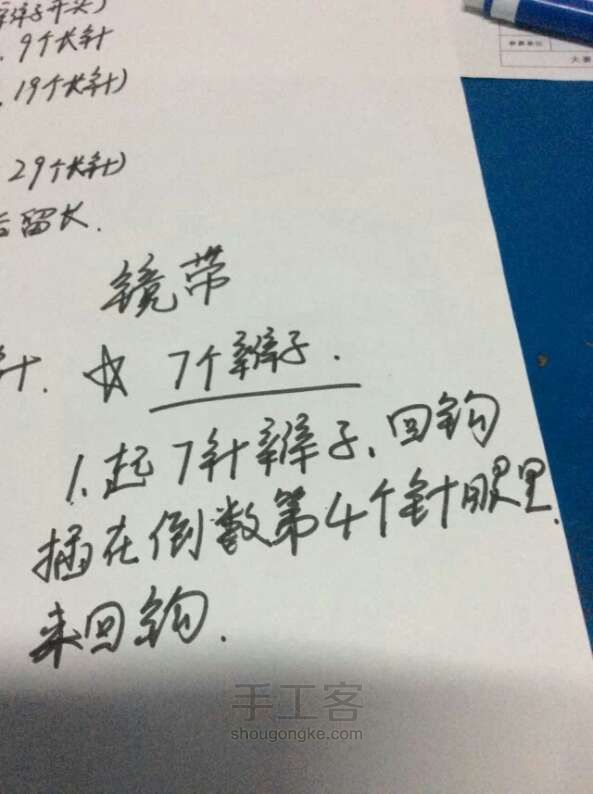 辫子开头)
9个长针
19个长针)
29个长针)
留长.
镜带
针. ☆ 7个辫子.
1.起7针辫子、回钩
插在倒数第4个针眼里.
来回钩.
手工客
shougongke.com